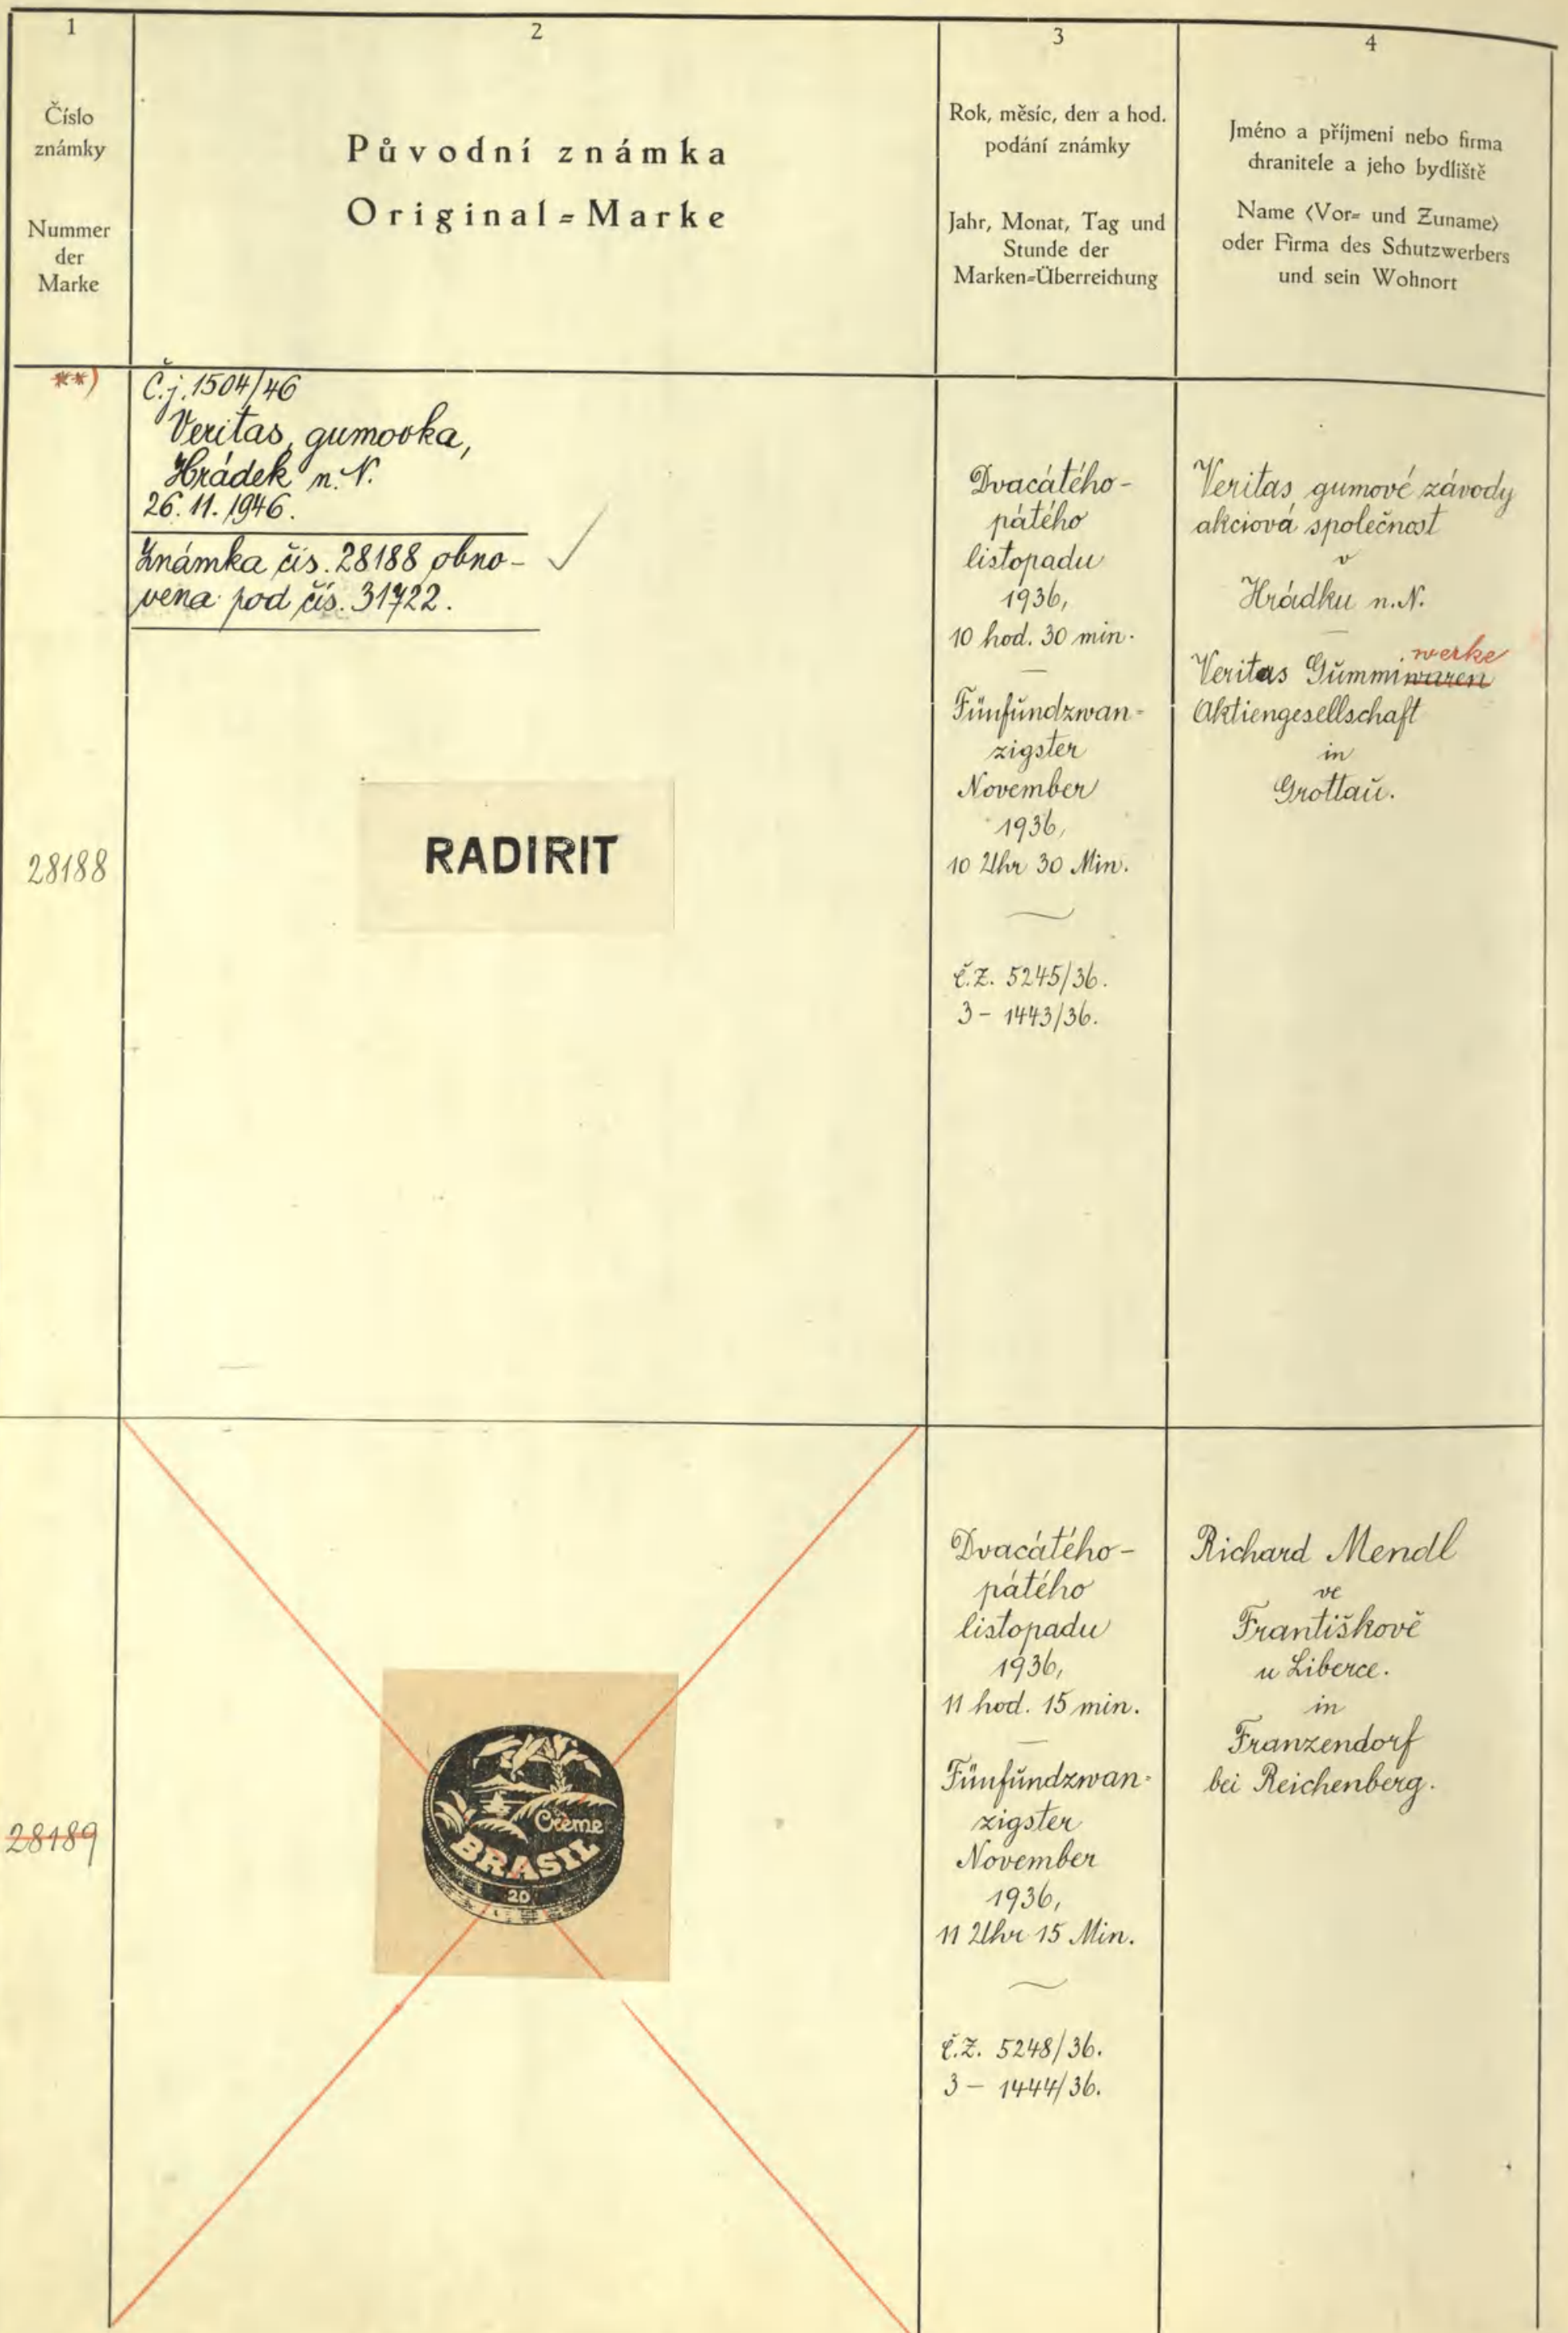 1
Číslo
známky
Nummer
der
Marke
2
Původní známka
Original=Marke
3
Rok, měsíc, den a hod.
podání známky
Jahr, Monat, Tag und
Stunde der
Marken=Überreichung
4
Jméno a příjmení nebo firma
chranitele a jeho bydliště
Name (Vor= und Zuname)
oder Firma des Schutzwerbers
und sein Wohnort
**)
28188
Č.j. 1504/46
Veritas, gumovka,
Hrádek n. N.
26. 11. 1946.
Známka čís. 28188 obno-
vena pod čís. 31722.
RADIRIT
Dvacátého-
pátého
listopadu
1936,
10 hod. 30 min.
Fünfundzwan-
zigster
November
1936,
10 Uhr 30 Min.
č.Z. 5245/36.
3 - 1443/36.
Veritas gumové závody
akciová společnost
v
Hrádku n. N.
werke
Veritas Gummiwaren
Aktiengesellschaft
in
Grottau.
28189
Creme
BRASIL
20
Dvacátého-
pátého
listopadu
1936,
11 hod. 15 min.
Fünfundzwan-
zigster
November
1936,
11 Uhr 15 Min.
č.Z. 5248/36.
3 - 1444/36.
Richard Mendl
ve
Františkově
u Liberce.
in
Franzendorf
bei Reichenberg.